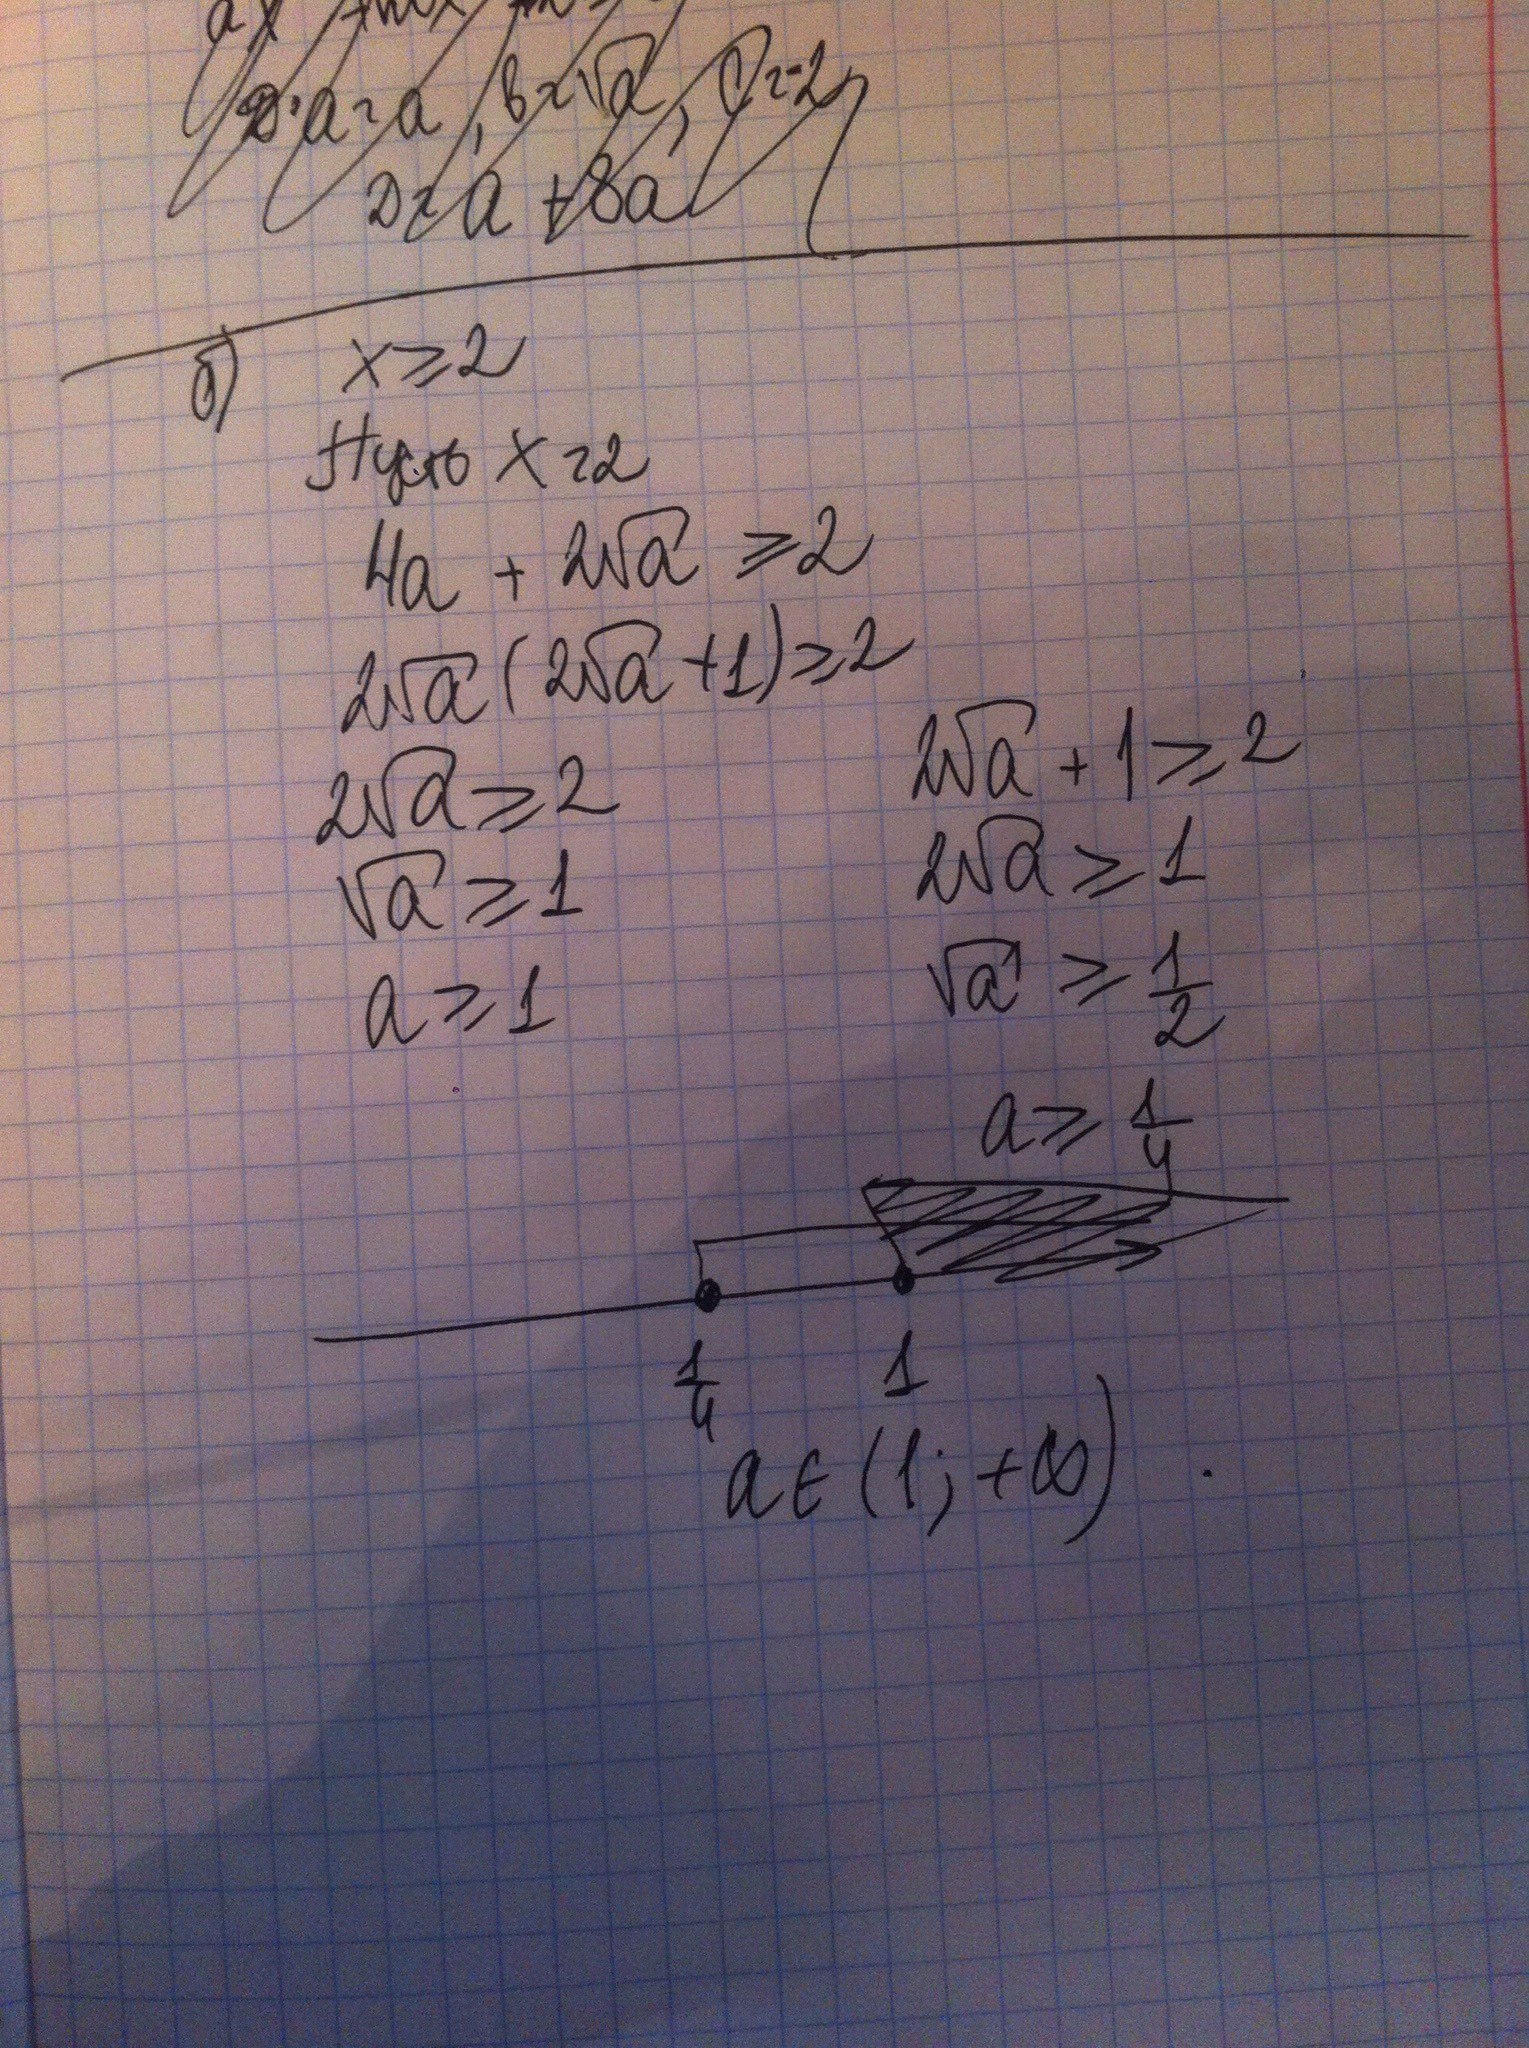 D: a = a, b = √a, C = -2
D = a + 8a
б) x ≥ 2
Пусть x = 2
4a + 2√a ≥ 2
2√a (2√a + 1) ≥ 2
2√a ≥ 2 2√a + 1 ≥ 2
√a ≥ 1 2√a ≥ 1
a ≥ 1 √a ≥ 1/2
a ≥ 1/4
1/4 1
a ∈ (1; +∞)